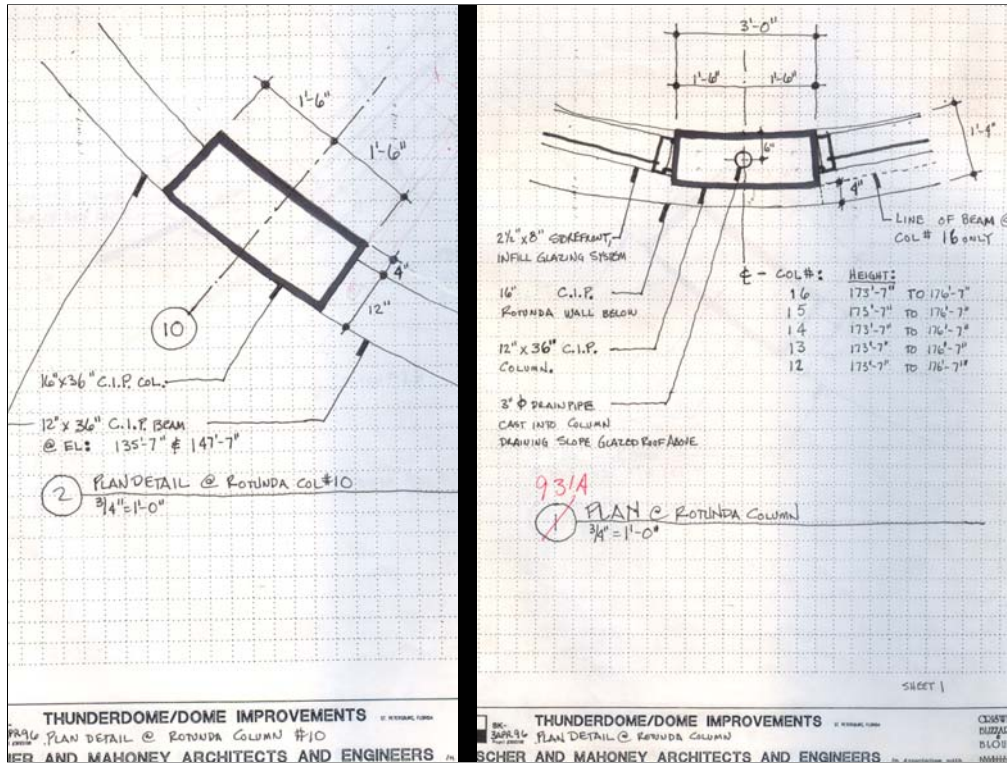 1'-6"
1'-6"
4"
12"
10
16"x36" C.I.P. COL.
12" x 36" C.I.P. BEAM
@ EL: 135'-7" & 147'-7"
2 PLAN DETAIL @ ROTUNDA COL#10
3/4"=1'-0"
THUNDERDOME/DOME IMPROVEMENTS ST. PETERSBURG, FLORIDA
PLAN DETAIL @ ROTUNDA COLUMN #10
ARCHITECTS AND ENGINEERS
AND MAHONEY
3'-0"
1'-6" 1'-6"
6"
1'-4"
4"
LINE OF BEAM @
COL# 16 ONLY
2½"x8" STOREFRONT,
INFILL GLAZING SYSTEM
16" C.I.P.
ROTUNDA WALL BELOW
12" x 36" C.I.P.
COLUMN.
3" ϕ DRAIN PIPE
CAST INTO COLUMN
DRAINING SLOPE GLAZED ROOF ABOVE
℄ - COL#: HEIGHT:
16 173'-7" TO 176'-7"
15 173'-7" TO 176'-7"
14 173'-7" TO 176'-7"
13 173'-7" TO 176'-7"
12 173'-7" TO 176'-7"
931A
1 PLAN @ ROTUNDA COLUMN
3/4" = 1'-0"
SHEET 1
SK-
3APR96
THUNDERDOME/DOME IMPROVEMENTS ST. PETERSBURG, FLORIDA
PLAN DETAIL @ ROTUNDA COLUMN
SCHER AND MAHONEY ARCHITECTS AND ENGINEERS In Association with